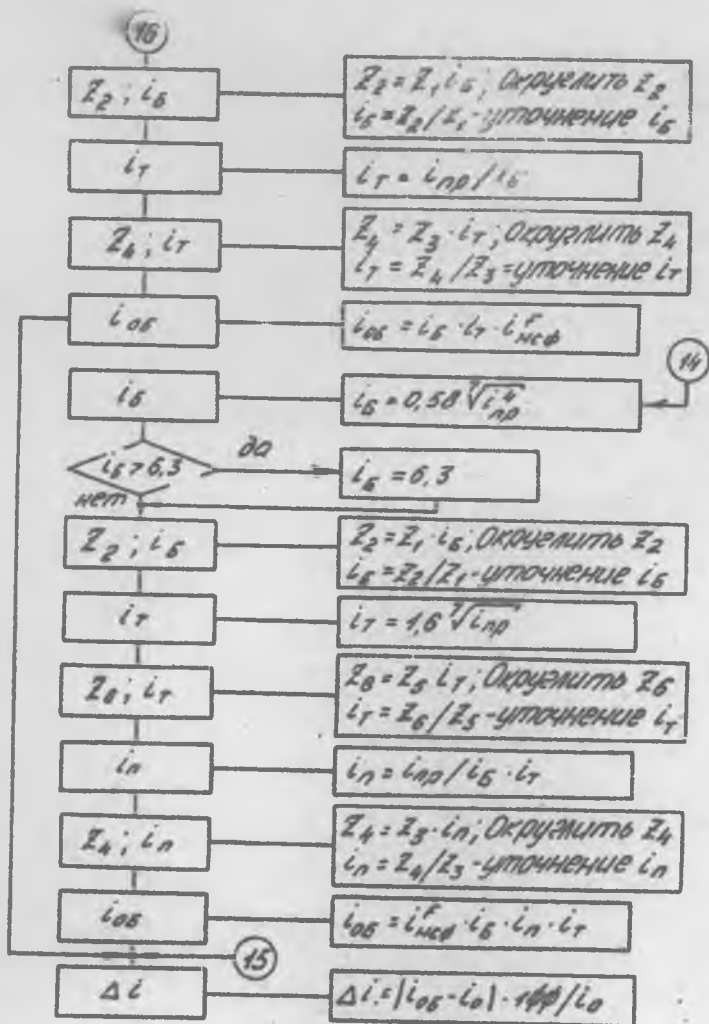 16
Z₂ ; i_Б
Z₂ = Z₁ i_Б ; Округлить Z₂
i_Б = Z₂/Z₁ - уточнение i_Б
i_т
i_т = i_пр / i_Б
Z₄ ; i_т
Z₄ = Z₃ · i_т ; Округлить Z₄
i_т = Z₄/Z₃ - уточнение i_т
i_об
i_об = i_Б · i_т · i_неф^F
14
i_Б
i_Б = 0,58 ⁷√i_пр⁴
i_Б > 6,3
да
i_Б = 6,3
нет
Z₂ ; i_Б
Z₂ = Z₁ · i_Б ; Округлить Z₂
i_Б = Z₂/Z₁ - уточнение i_Б
i_т
i_т = 1,6 ⁷√i_пр
Z₆ ; i_т
Z₆ = Z₅ i_т ; Округлить Z₆
i_т = Z₆/Z₅ - уточнение i_т
i_п
i_п = i_пр / i_Б · i_т
Z₄ ; i_п
Z₄ = Z₃ · i_п ; Округлить Z₄
i_п = Z₄/Z₃ - уточнение i_п
i_об
i_об = i_неф^F · i_Б · i_п · i_т
15
Δi
Δi = |i_об - i₀| · 1ϕϕ/i₀